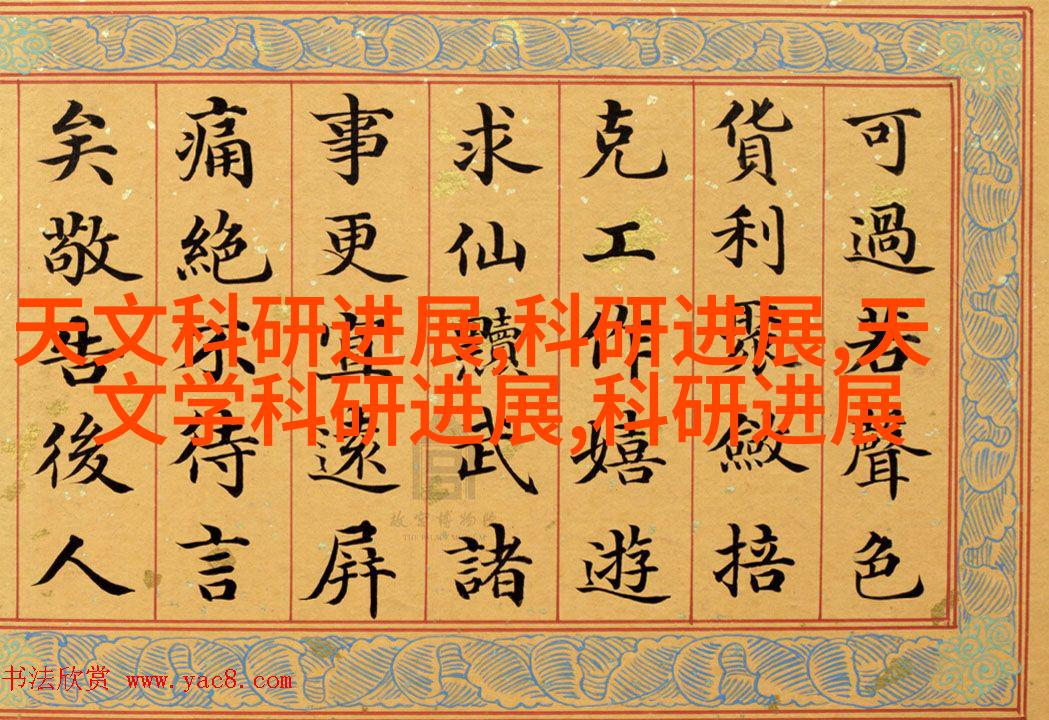 可過若聲色
貨利聚斂掊
克工作嬉遊
求仙黷武諸
事更宜遠屏
痛絕不待言
矣敬告後人
天文科研进展,科研进展,天
文学科研进展,科研进展
故宫博物院
THE PALACE MUSEUM
书法欣赏 www.yac8.com